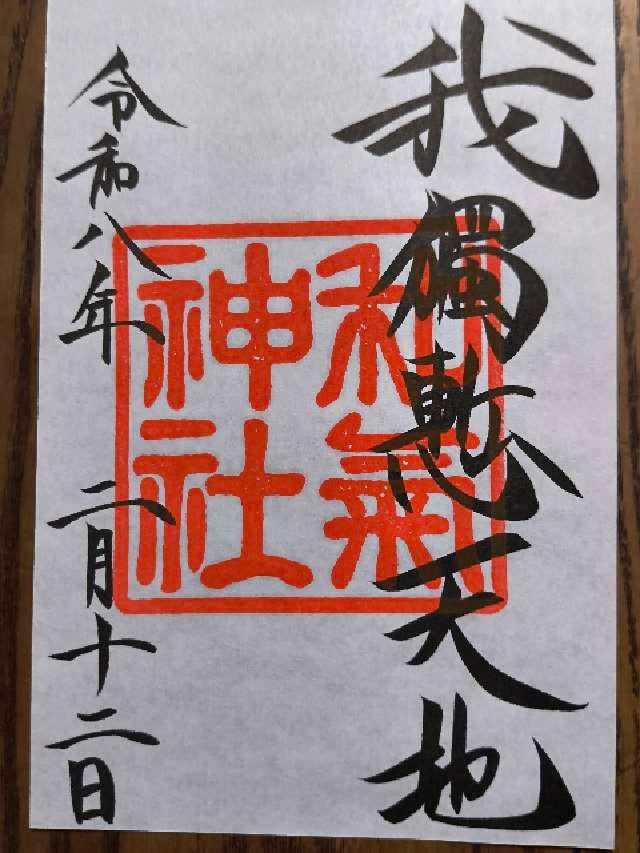 我獨慙天地
和氣
神社
令和八年 二月十二日